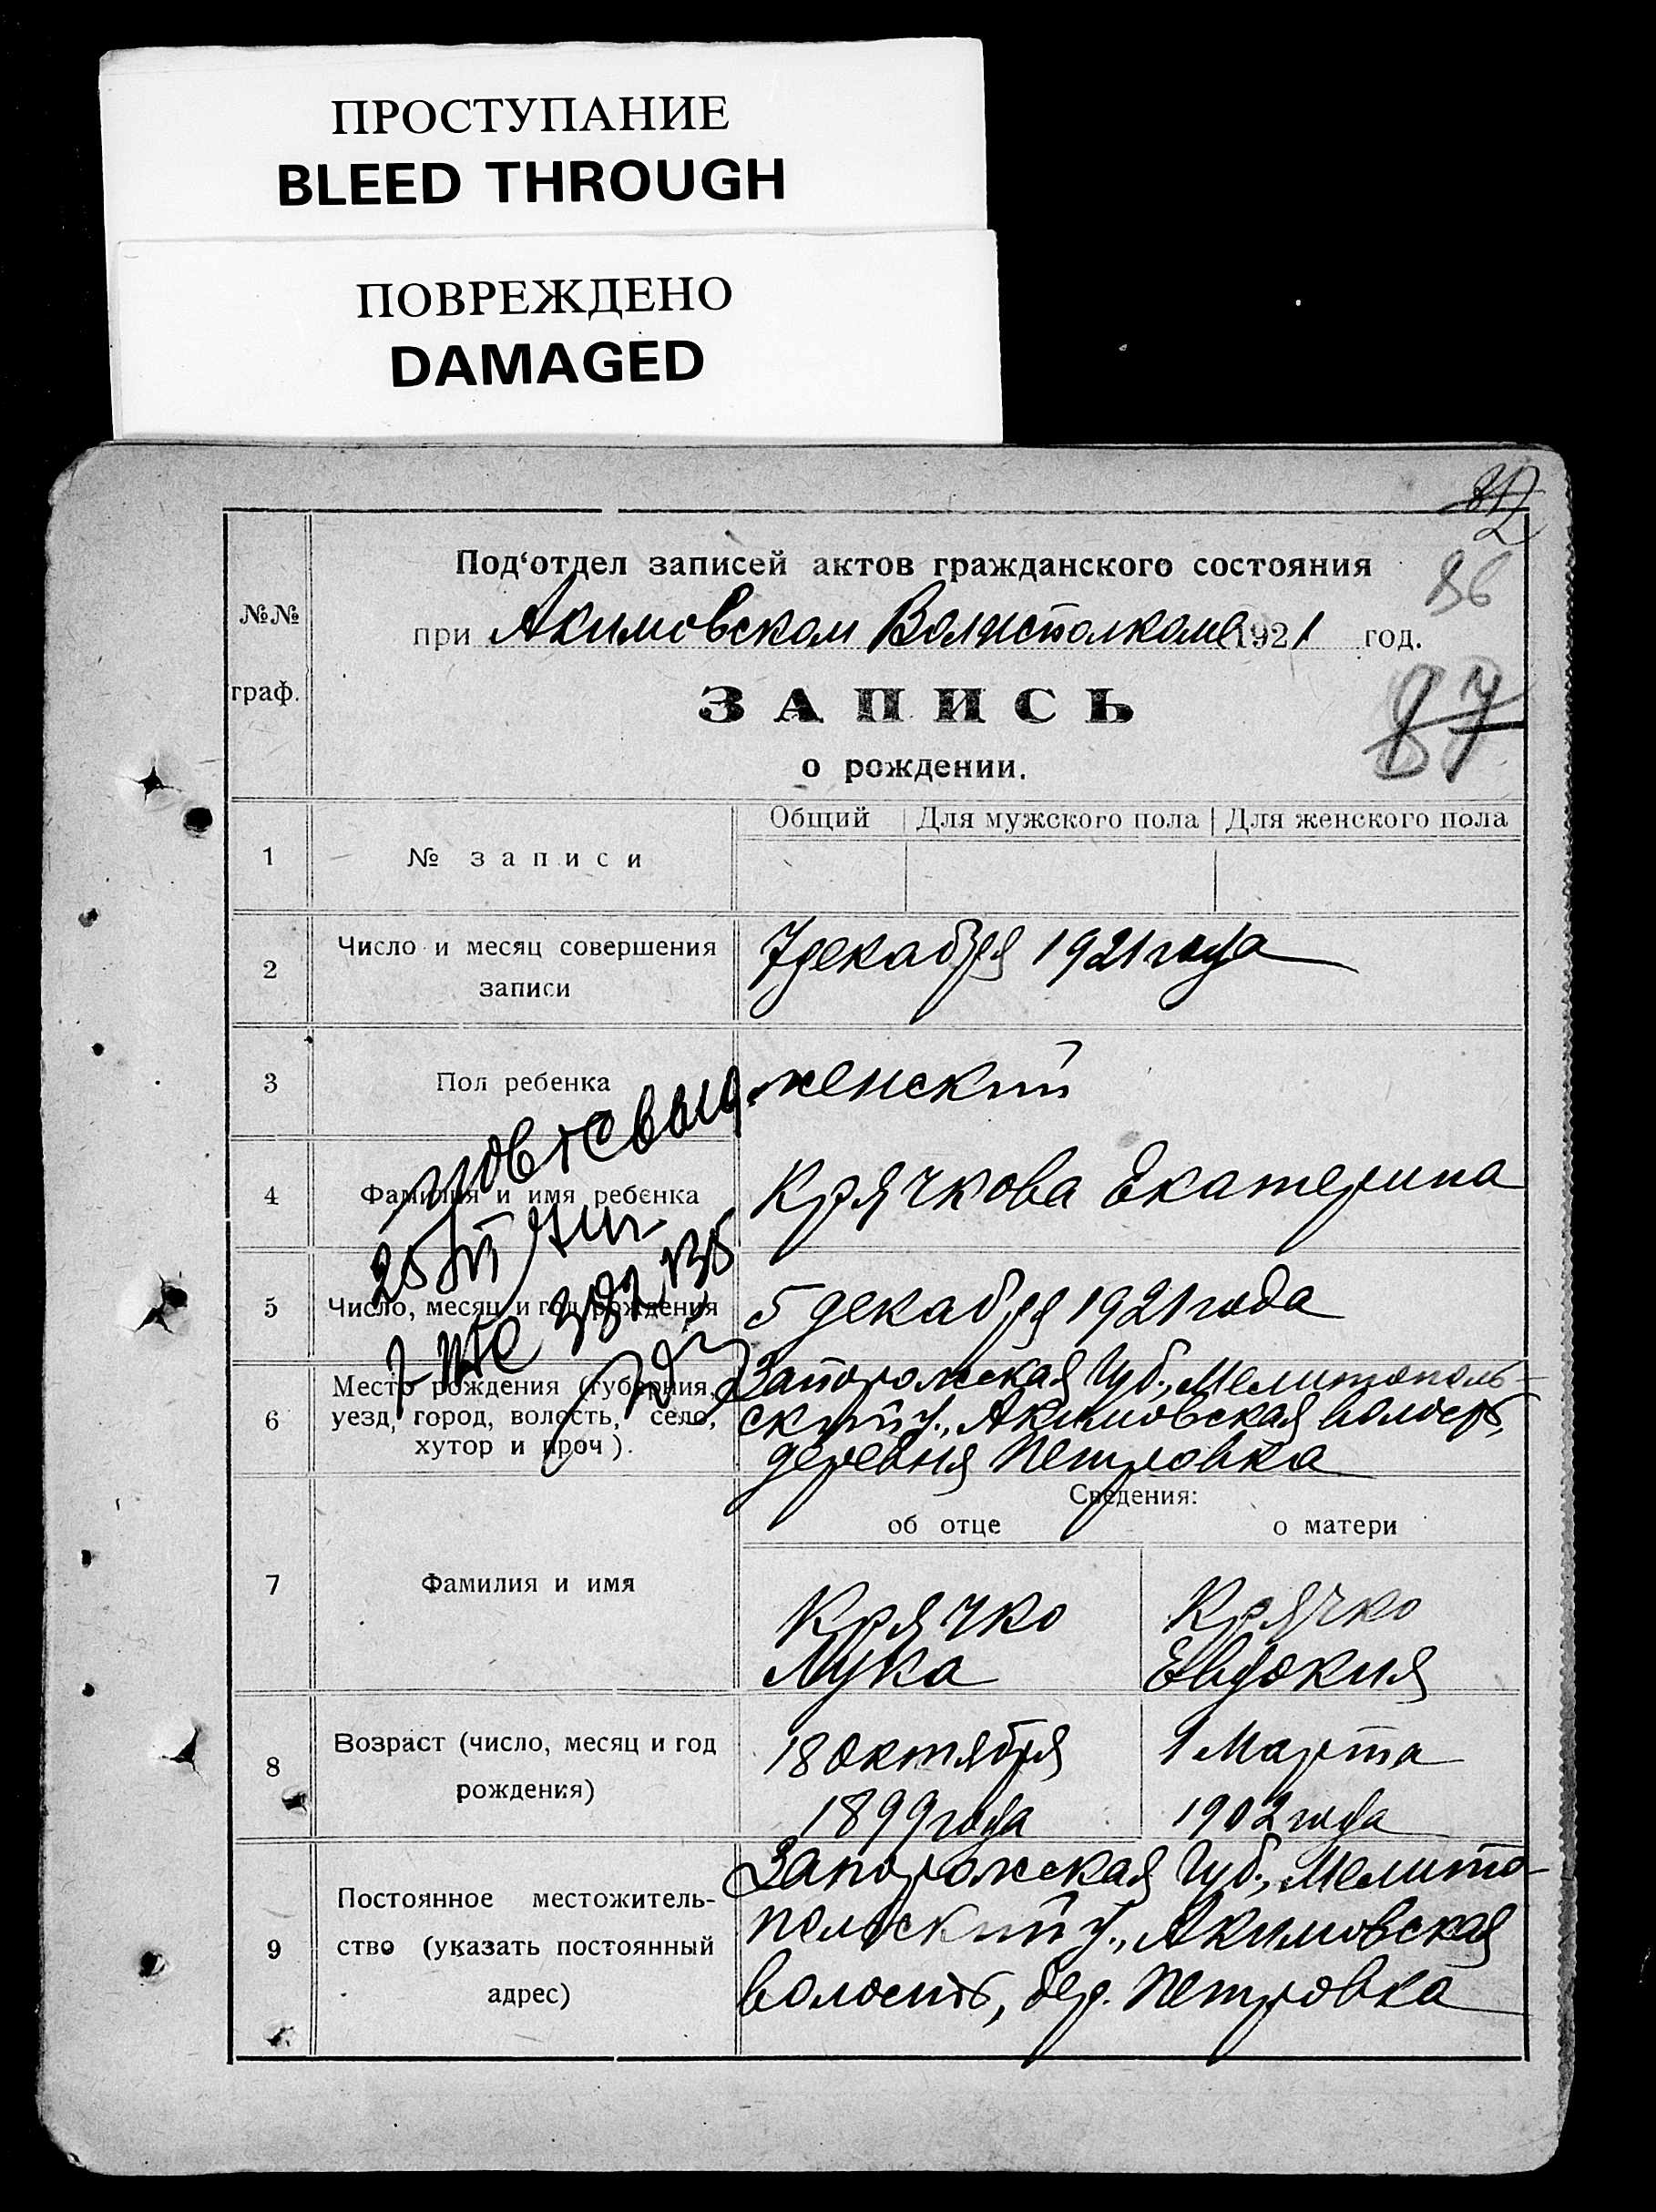 ПРОСТУПАНИЕ
BLEED THROUGH
ПОВРЕЖДЕНО
DAMAGED
86
87
№№
граф.
Под‘отдел записей актов гражданского состояния
при Акимовском Волисполкоме 1921 год.
ЗАПИСЬ
о рождении.
1
№ записи
Общий Для мужского пола Для женского пола
2
Число и месяц совершения
записи
7 декабря 1921 года
3
Пол ребенка
женский
4
Фамилия и имя ребенка
Крячкова Екатерина
5
Число, месяц и год рождения
5 декабря 1921 года
6
Место рождения (губерния,
уезд, город, волость, село,
хутор и проч).
Запорожская Губ., Мелитополь-
ский у., Акимовская волость,
деревня Петровка
Сведения:
об отце о матери
7
Фамилия и имя
Крячко
Лука
Крячко
Евдокия
8
Возраст (число, месяц и год
рождения)
18 октября
1899 года
1 Марта
1902 года
9
Постоянное местожитель-
ство (указать постоянный
адрес)
Запорожская Губ., Мелито-
польский у., Акимовская
волость, дер. Петровка